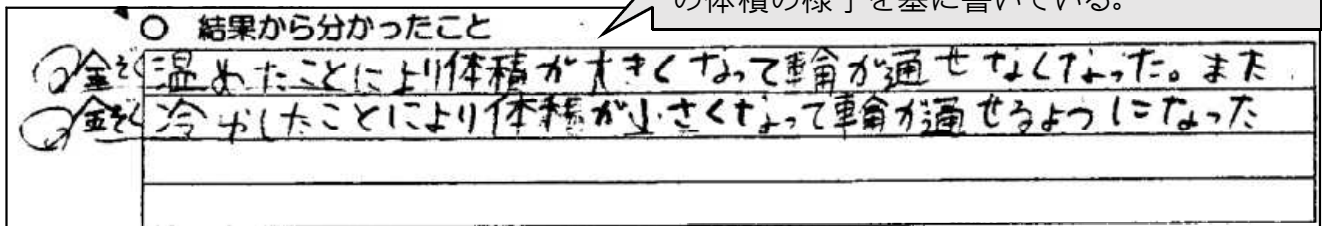 の体積の様子を基に書いている。
○ 結果から分かったこと
金ぞく温めたことにより体積が大きくなって輪が通せなくなった。また
金ぞく冷やしたことにより体積が小さくなって輪が通せるようになった